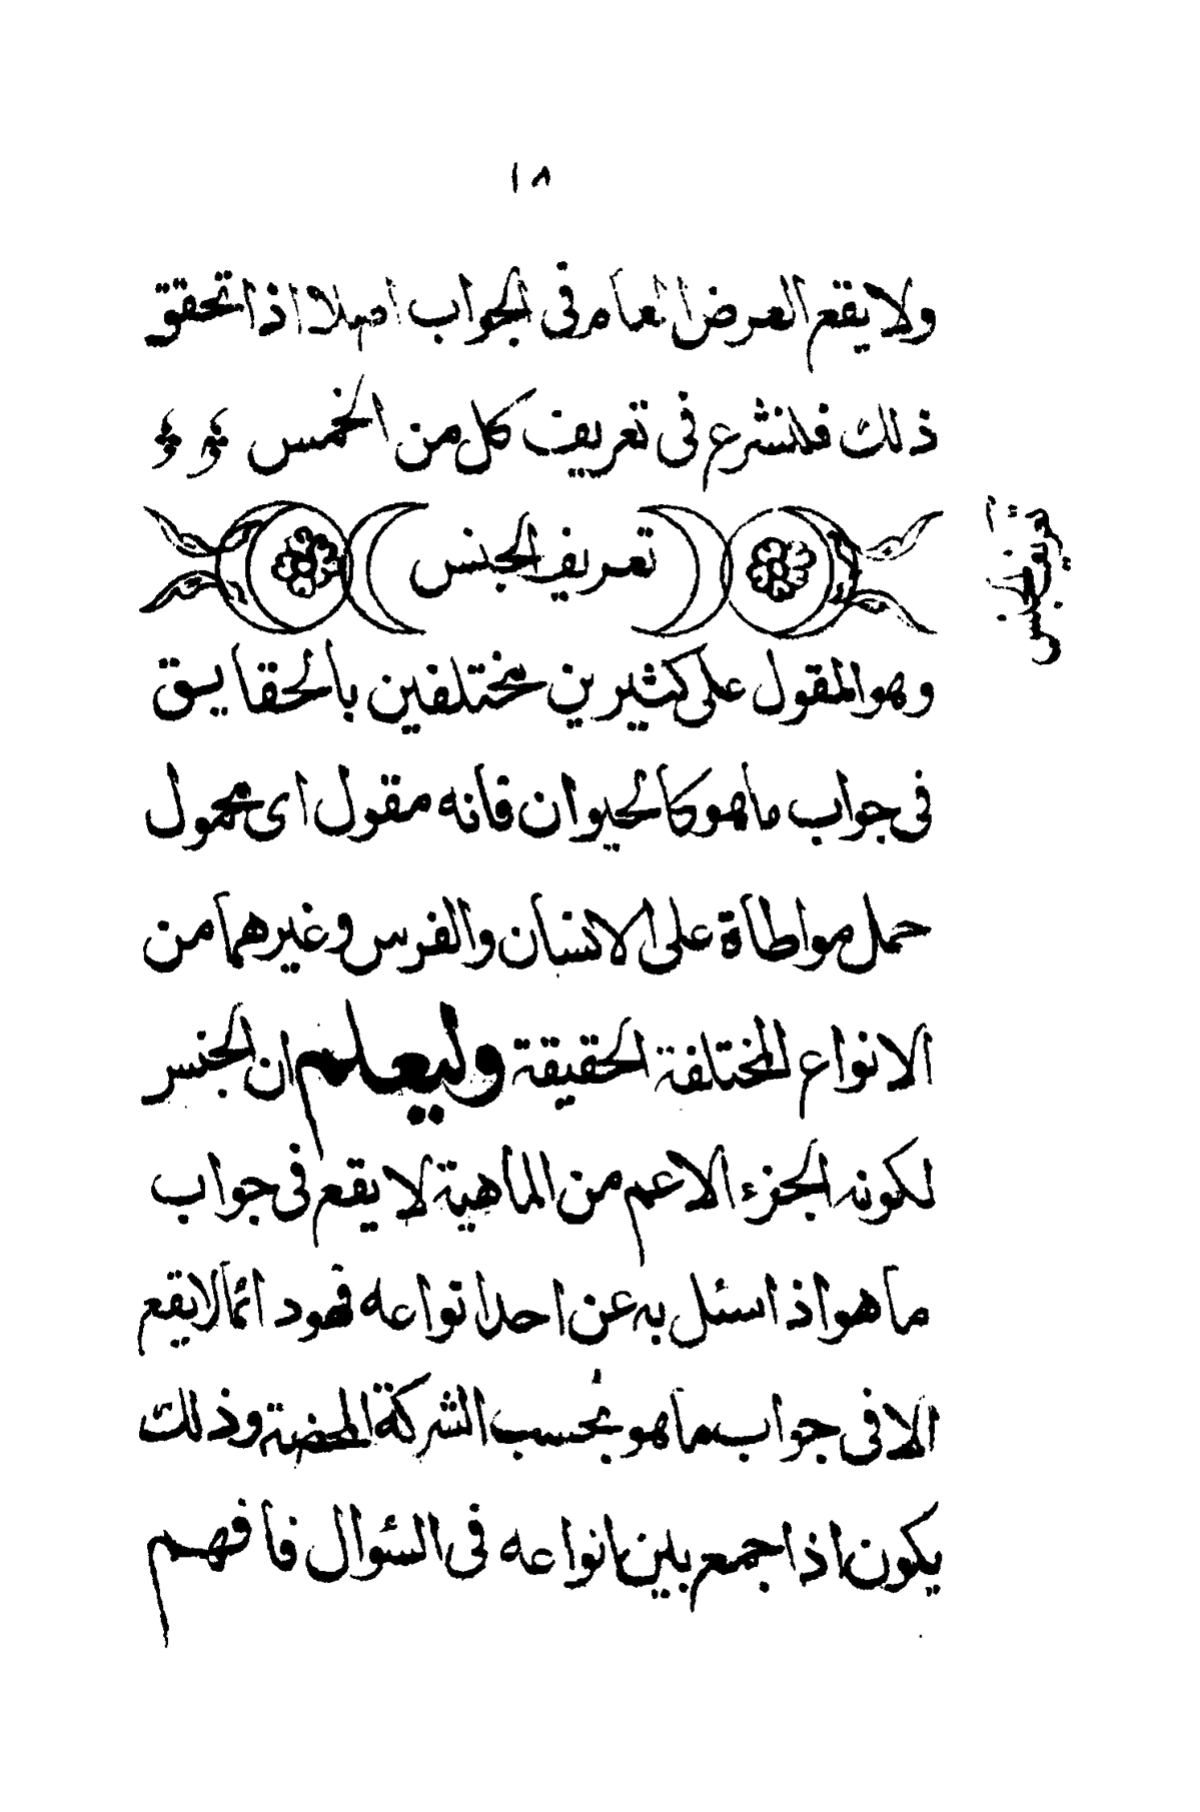 ١٨
ولا يقع العرض العام فى الجواب اصلا اذا تحقق
ذلك فلنشرع فى تعريف كل من الخمس
تعريف الجنس
تعريف الجنس
وهو المقول على كثيرين مختلفين بالحقايق
فى جواب ما هو كالحيوان فانه مقول اى محمول
حمل مواطاة على الانسان والفرس وغيرهما من
الانواع المختلفة الحقيقة وليعلم ان الجنس
لكونه الجزء الاعم من الماهية لا يقع فى جواب
ما هو اذا سئل به عن احد انواعه فهو دائما لا يقع
الا فى جواب ما هو بحسب الشركة المحضة وذلك
يكون اذا جمع بين انواعه فى السئوال فافهم